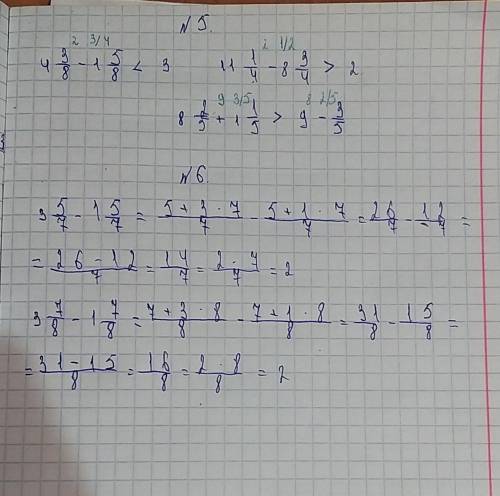 № 5.
2 3/4 2 1/2
4 3/8 - 1 5/8 < 3 11 1/4 - 8 3/4 > 2
9 3/5 8 2/5
8 2/5 + 1 1/5 > 9 - 3/5
№ 6.
3 5/7 - 1 5/7 = 5+3·7/7 - 5+1·7/7 = 26/7 - 12/7 =
= 26-12/7 = 14/7 = 2·7/7 = 2
3 7/8 - 1 7/8 = 7+3·8/8 - 7+1·8/8 = 31/8 - 15/8 =
= 31-15/8 = 16/8 = 2·8/8 = 2